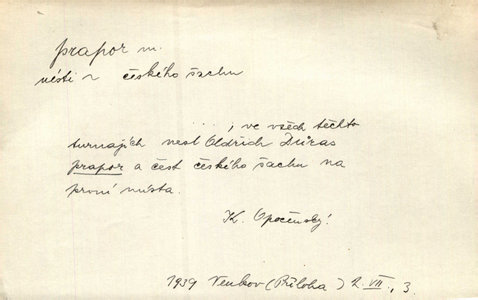 prapor m.
nésti ~ českého šachu
...., ve všech těchto
turnajích nesl Oldřich Důras
prapor a čest českého šachu na
první místa.
K. Opočenský.
1939 Venkov (Příloha) 2. VII., 3.